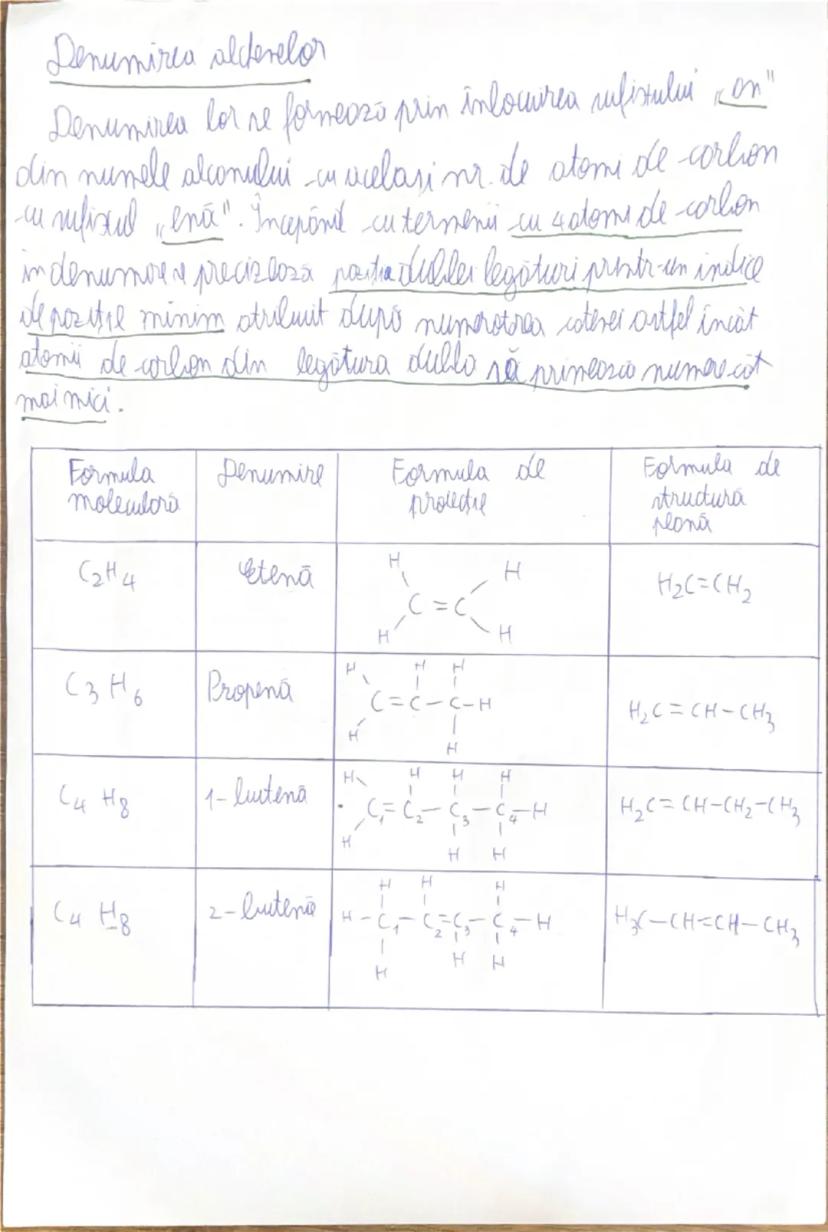 Denumirea alchenelor
Denumirea lor se formează prin înlocuirea sufixului „an"
din numele alcanului cu același nr. de atomi de carbon
cu sufixul „enă". Începând cu termenii cu 4 atomi de carbon
în denumire se precizează poziția dublei legături printr-un indice
de poziție minim atribuit după numerotarea catenei astfel încât
atomii de carbon din legătura dublă să primească numere cât
mai mici.
Formula moleculară | Denumire | Formula de proiecție | Formula de structură plană
C2H4 | Etenă | H H C=C H H | H2C=CH2
C3H6 | Propenă | H H H C=C-C-H H H | H2C=CH-CH3
C4H8 | 1-butenă | H H H H C1=C2-C3-C4-H H H H | H2C=CH-CH2-CH3
C4H8 | 2-butenă | H H H H-C1-C2=C3-C4-H H H H | H3C-CH=CH-CH3